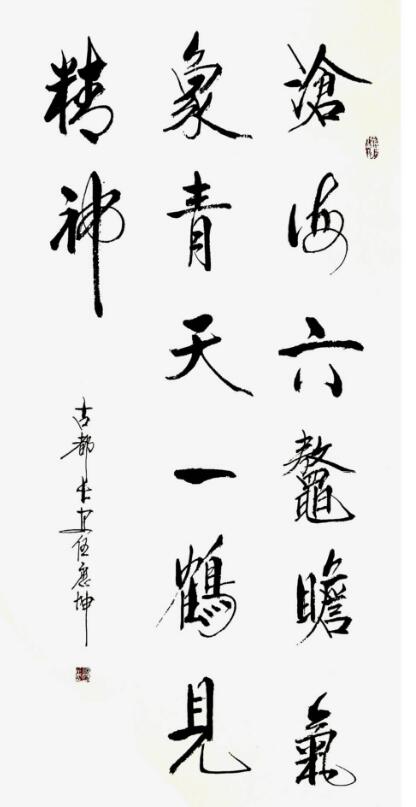 滄海六鼇瞻氣
象青天一鶴見
精神
古都長安任應坤